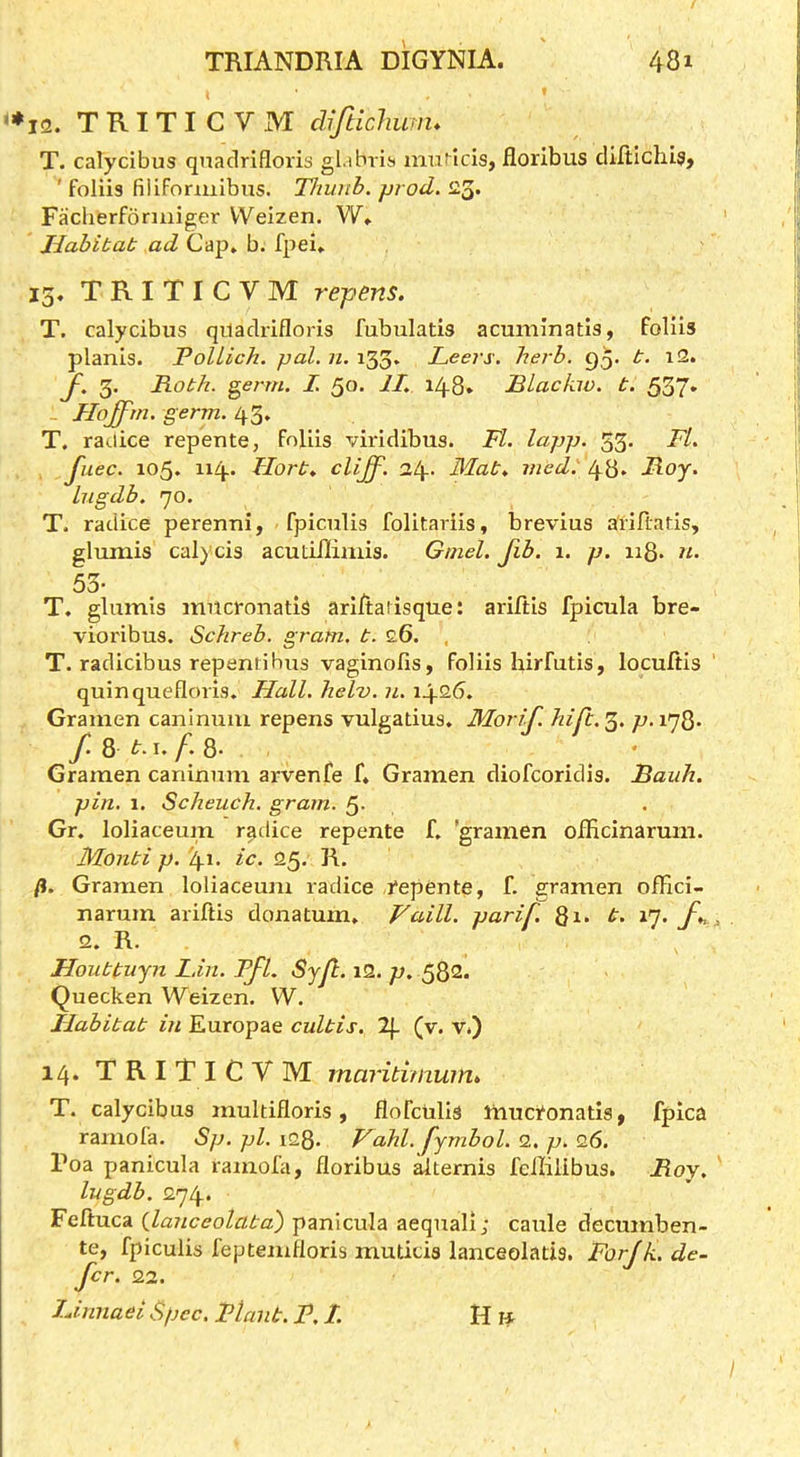 TRIANDRIA DIGYNIA. 481
*12. TRITICVM diſtichum.
T. calycibus quadrifloris glabris muticis, floribus diſtichis,
foliis filiformibus. Thunb. prod. 23.
Fächerförmiger Weizen. W.
Habitat ad Cap. b. ſpei.
13. TRITICVM repens.
T. calycibus quadrifloris ſubulatis acuminatis, foliis
planis. Pollich. pal. n. 133. Leers. herb. 95. t. 12.
f. 3. Roth. germ. I. 50. II. 148. Blackw. t. 537.
Hoffm. germ. 43.
T. radice repente, foliis viridibus. Fl. lapp. 33. Fl.
ſuec. 105. 114. Hort. cliff. 24. Mat. med. 48. Roy.
lugdb. 70.
T. radice perenni, ſpiculis ſolitariis, brevius ariſtatis,
glumis calycis acutiſſimis. Gmel. ſib. 1. p. 118. n.
53.
T. glumis mucronatis ariſtatisque: ariſtis ſpicula bre-
vioribus. Schreb. gram. t. 26.
T. radicibus repentibus vaginoſis, foliis hirſutis, locuſtis
quinquefloris. Hall. helv. n. 1426.
Gramen caninum repens vulgatius. Moriſ. hiſt. 3. p. 178.
ſ. 8 t. 1. f. 8.
Gramen caninum arvenſe ſ. Gramen dioſcoridis. Bauh.
pin. 1. Scheuch. gram. 5.
Gr. loliaceum radice repente ſ. gramen officinarum.
Monti p. 41. ic. 25. R.
β. Gramen loliaceum radice repente, ſ. gramen offici-
narum ariſtis donatum. Vaill. pariſ. 81. t. 17. f.
2. R.
Houttuyn Lin. Pfl. Syſt. 12. p. 582.
Quecken Weizen. W.
Habitat in Europae cultis. ♃ (v. v.)
14. TRITICVM maritimum.
T. calycibus multifloris, floſculis mucronatis, ſpica
ramoſa. Sp. pl. 128. Vahl. ſymbol. 2. p. 26.
Poa panicula ramoſa, floribus alternis ſeſſilibus. Roy.
lugdb. 274.
Feſtuca (lanceolata) panicula aequali; caule decumben-
te, ſpiculis ſeptemfloris muticis lanceolatis. Forſk. de-
ſcr. 22.
Linnaei Spec. Plant. P. I. H h